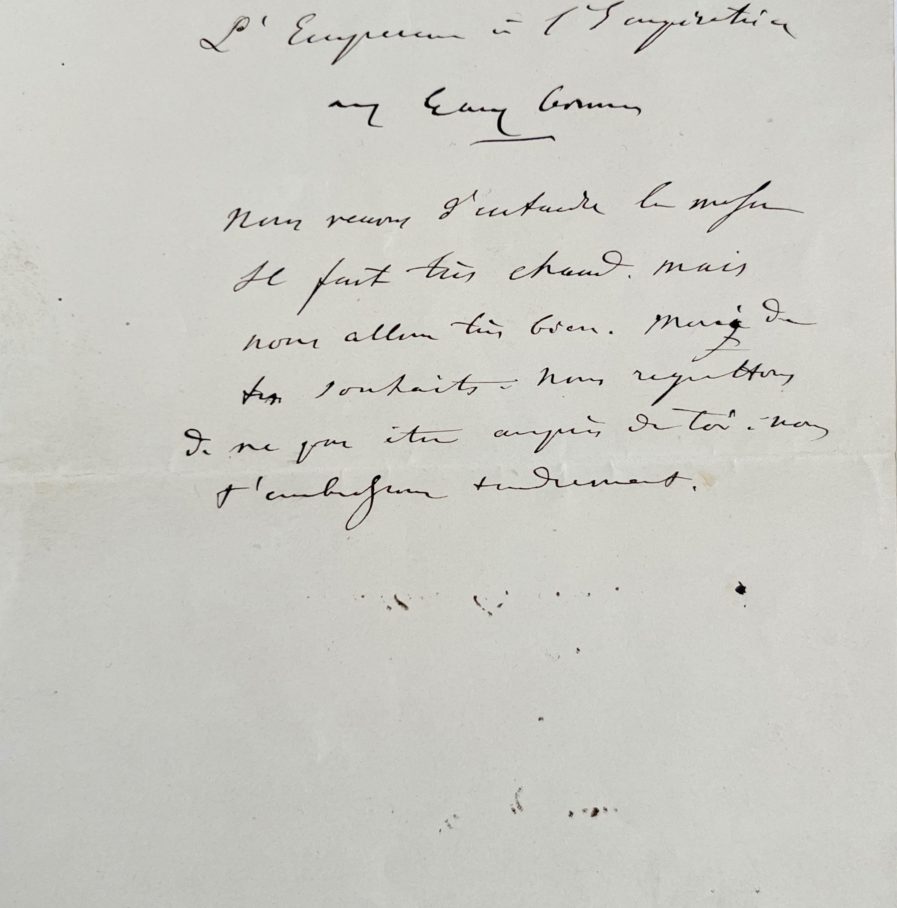 L'Empereur à l'Impératrice
aux Eaux Bonnes
Nous venons d'entendre la messe
Il fait très chaud. mais
nous allons très bien. Merci de
tes souhaits. Nous regrettons
de ne pas être auprès de toi. nous
t'embrassons tendrement.